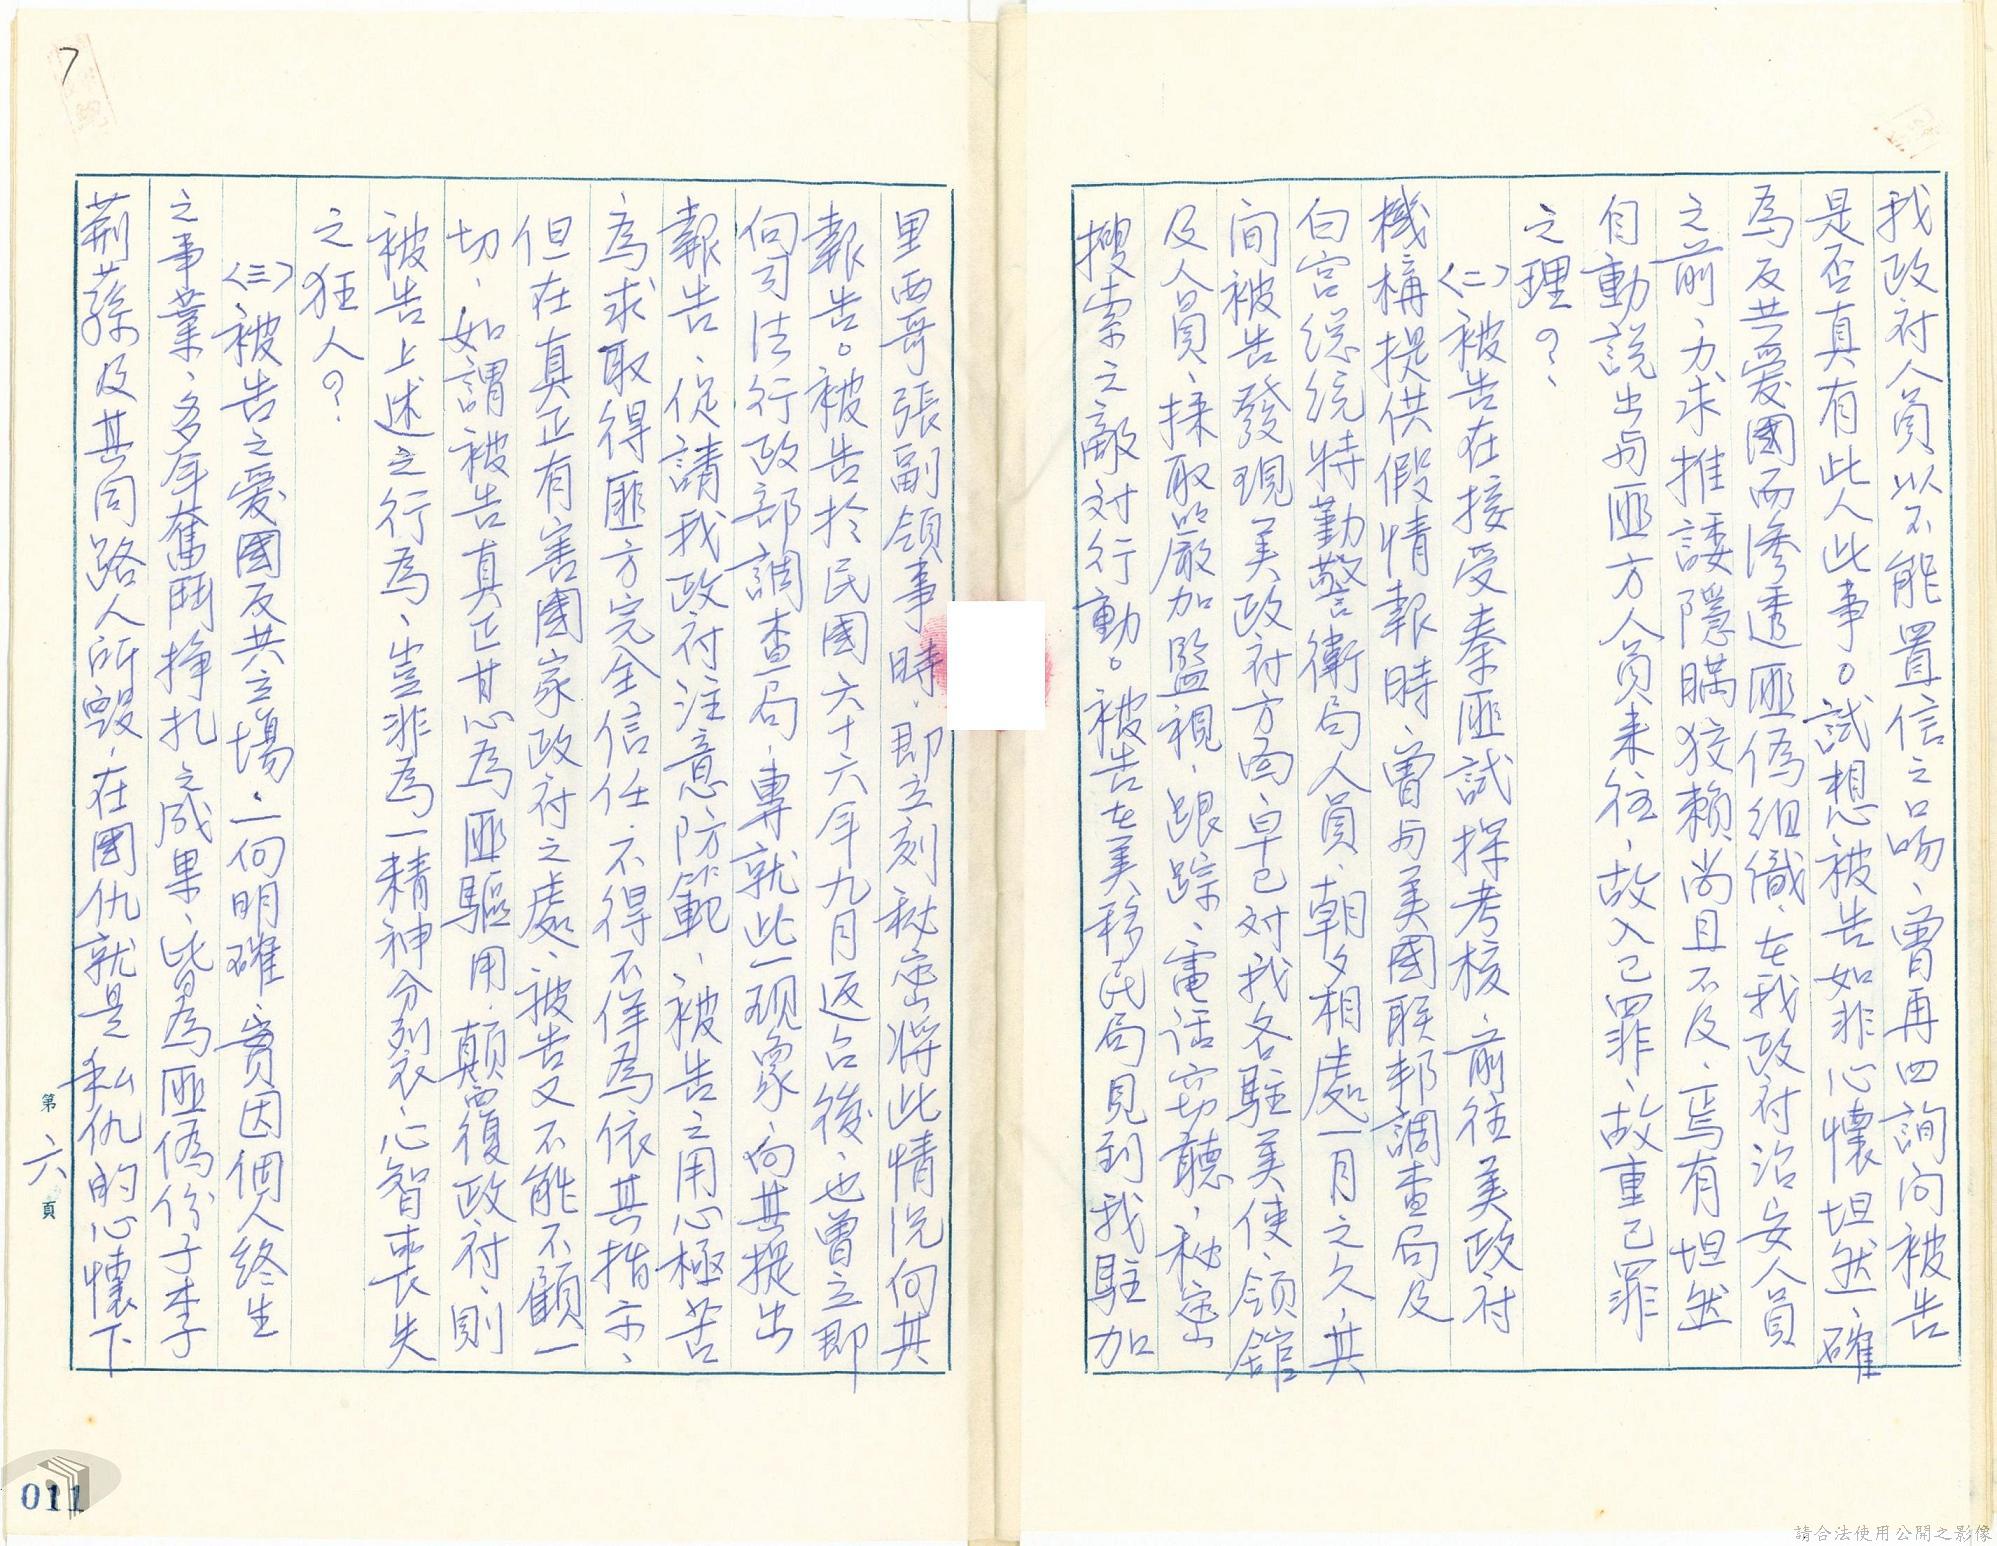 我政府人員以不能置信之口吻、曾再四詢问被告
是否真有此人此事。試想被告如非心懷坦然、確
為反共愛國而滲透匪偽組織、在我政府治安人員
之前、力求推諉隱瞞狡賴尚且不及、焉有坦然
自動說出与匪方人員来往、故入己罪、故重己罪
之理？、
〈二〉被告在接受秦匪試探考核、前往美政府
機構提供假情報時、曾与美國联邦調查局及
白宮総統特勤警衛局人員、朝夕相處一月之久、其
间被告發現美政府方面早已对我各駐美使、领館
及人員、採取嚴加監視、跟踪、電话窃聽、秘密
搜索之敵对行動。被告在美移民局見到我駐加
里西哥張副领事時、即立刻秘密将此情况向其
報告。被告於民國六十六年九月返台後、也曾立即
向司法行政部調查局、專就此一现象、向其提出
報告、促請我政府注意防範、被告之用心極苦
為求取得匪方完全信任不得不佯為依其指示、
但在真正有害國家政府之處、被告又不能不顧一
切、如謂被告真正甘心為匪驅用、顛覆政府、則
被告上述之行為、豈非為一精神分裂、心智喪失
之狂人？
〈三〉被告之愛國反共立場、一向明確、實因個人終生
之事業、多年奮鬥掙扎之成果、皆為匪偽份子李
荊蓀及其同路人所毀、在國仇就是私仇的心懷下
第六頁
7
011
請合法使用公開之影像